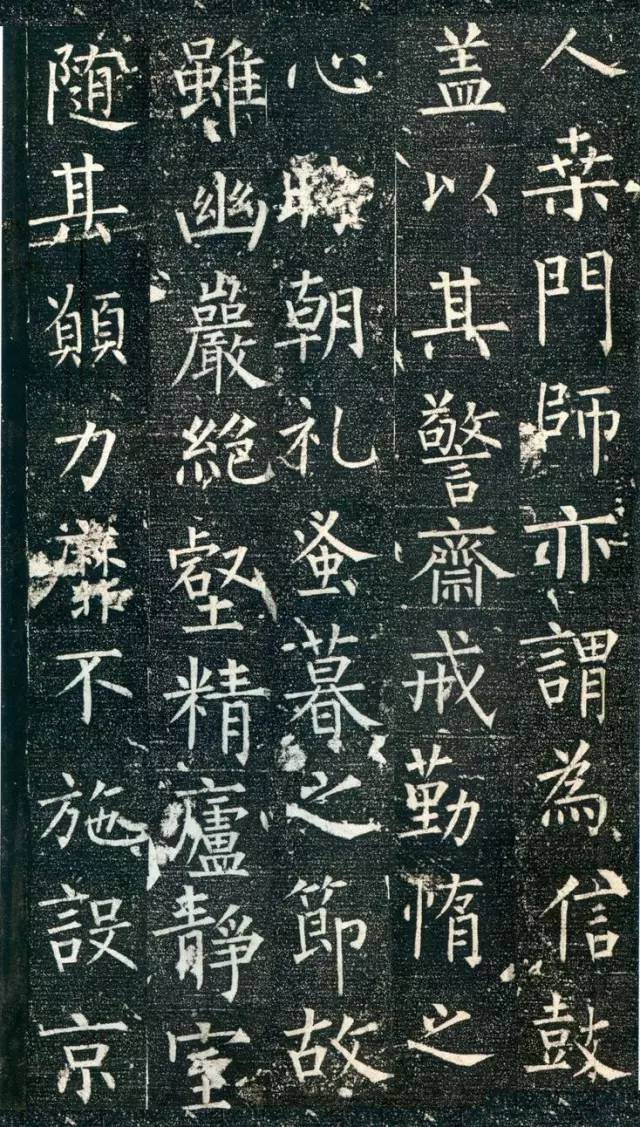 人桒門師亦謂為信鼓
盖以其警齋戒勤惰之
心時朝礼蚤暮之節故
雖幽巖絶壑精廬靜室
随其願力靡不施設京